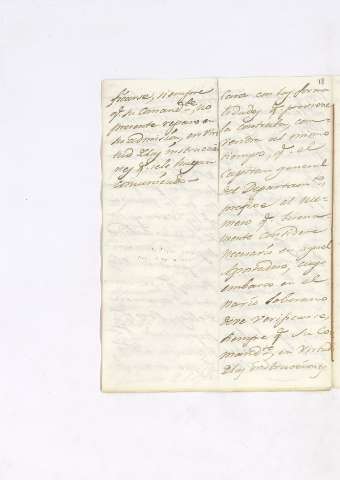 ficarse, siempre
q.e su Comand.te no
presente reparo en
su admision, en vir
tud de las instruccio
nes q.e se le hayan
comunicado.
18
cara con las forma
lidades q.e previene
la Contrata, con
vendra al mismo
tiempo, q.e el
Capitan general
del Departam.to
prefixe el nu-
mero q.e buena
mente considere
necesario en aquel
Apostadero, cuyo
embarco en el
navio Soberano
deve verificarse,
siempre q.e su Co
mand.te en virtud
de las instrucciones